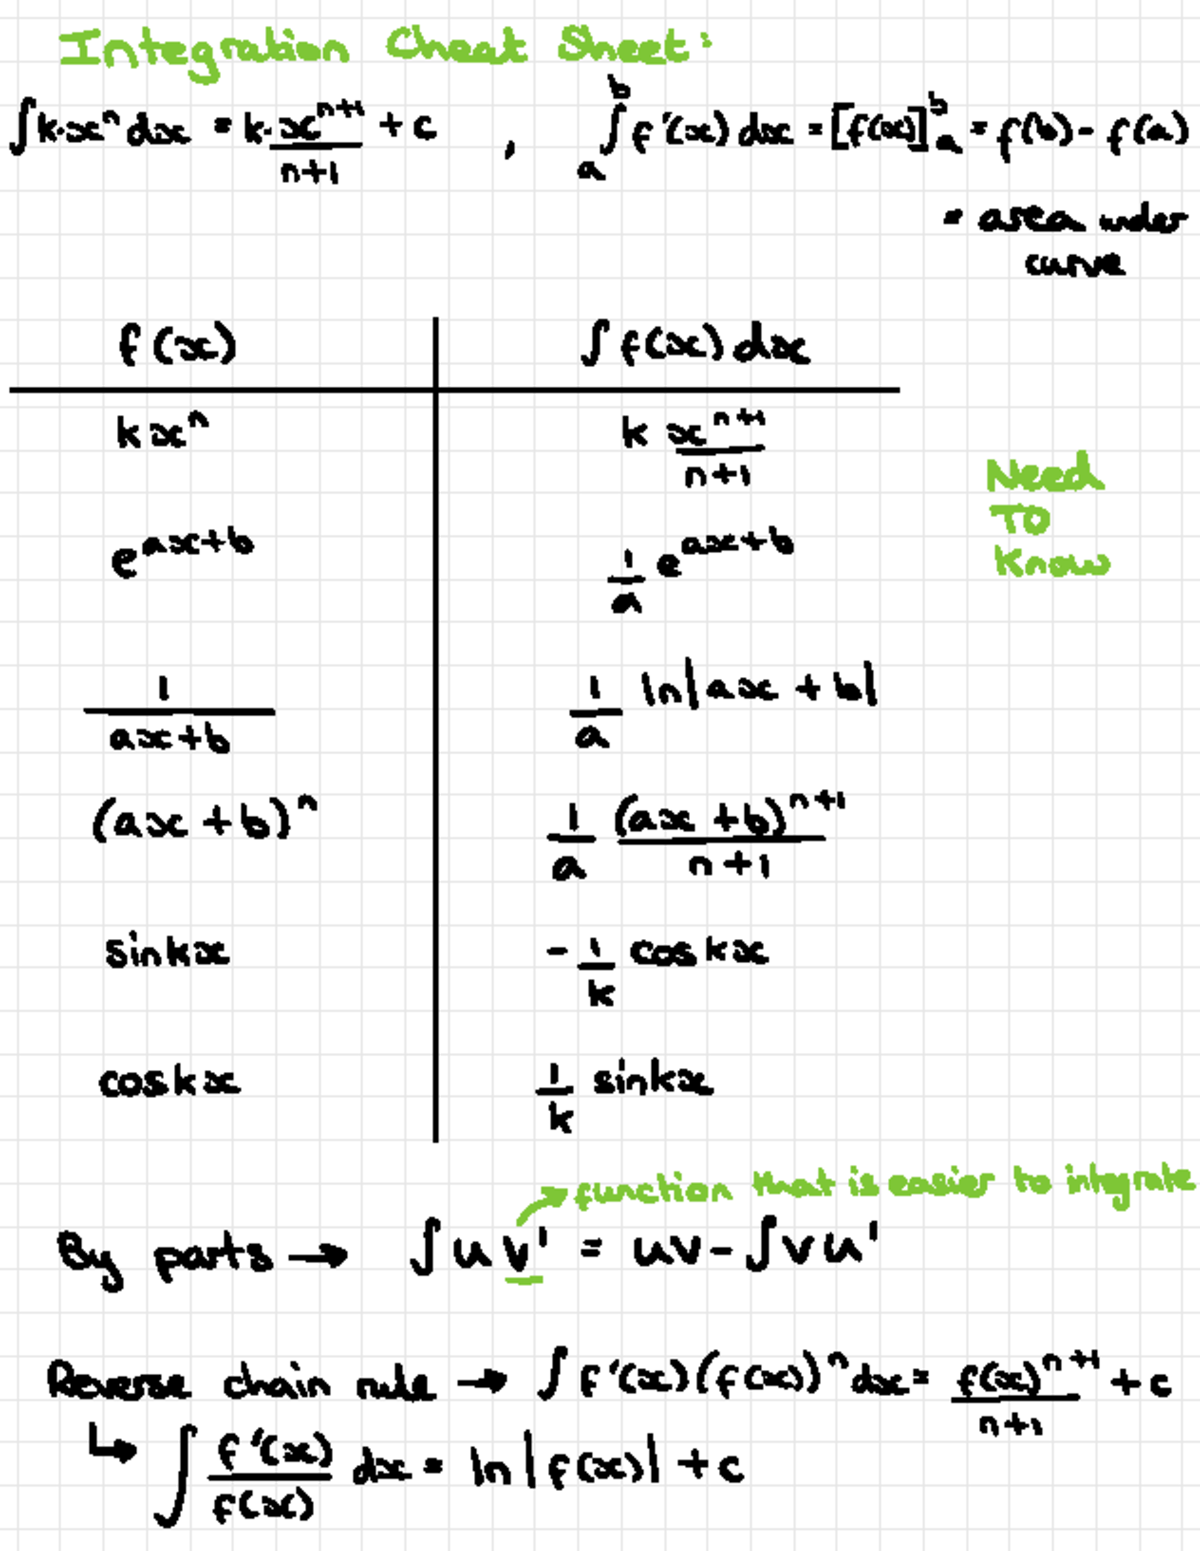 Integration Cheat Sheet:
∫k·xⁿ dx = k·xⁿ⁺¹/n+1 + c , ₐ∫ᵇ f'(x) dx = [f(x)]ᵇₐ = f(b) - f(a)
= area under
curve
f(x) | ∫ f(x) dx
kxⁿ | k xⁿ⁺¹/n+1
Need
To
Know
e^(ax+b) | 1/a e^(ax+b)
1/ax+b | 1/a ln|ax + b|
(ax + b)ⁿ | 1/a (ax + b)ⁿ⁺¹/n+1
sinkx | -1/k cos kx
coskx | 1/k sinkx
function that is easier to integrate
By parts → ∫ u v' = uv - ∫ v u'
Reverse chain rule → ∫ f'(x)(f(x))ⁿ dx = f(x)ⁿ⁺¹/n+1 + c
↳ ∫ f'(x)/f(x) dx = ln|f(x)| + c